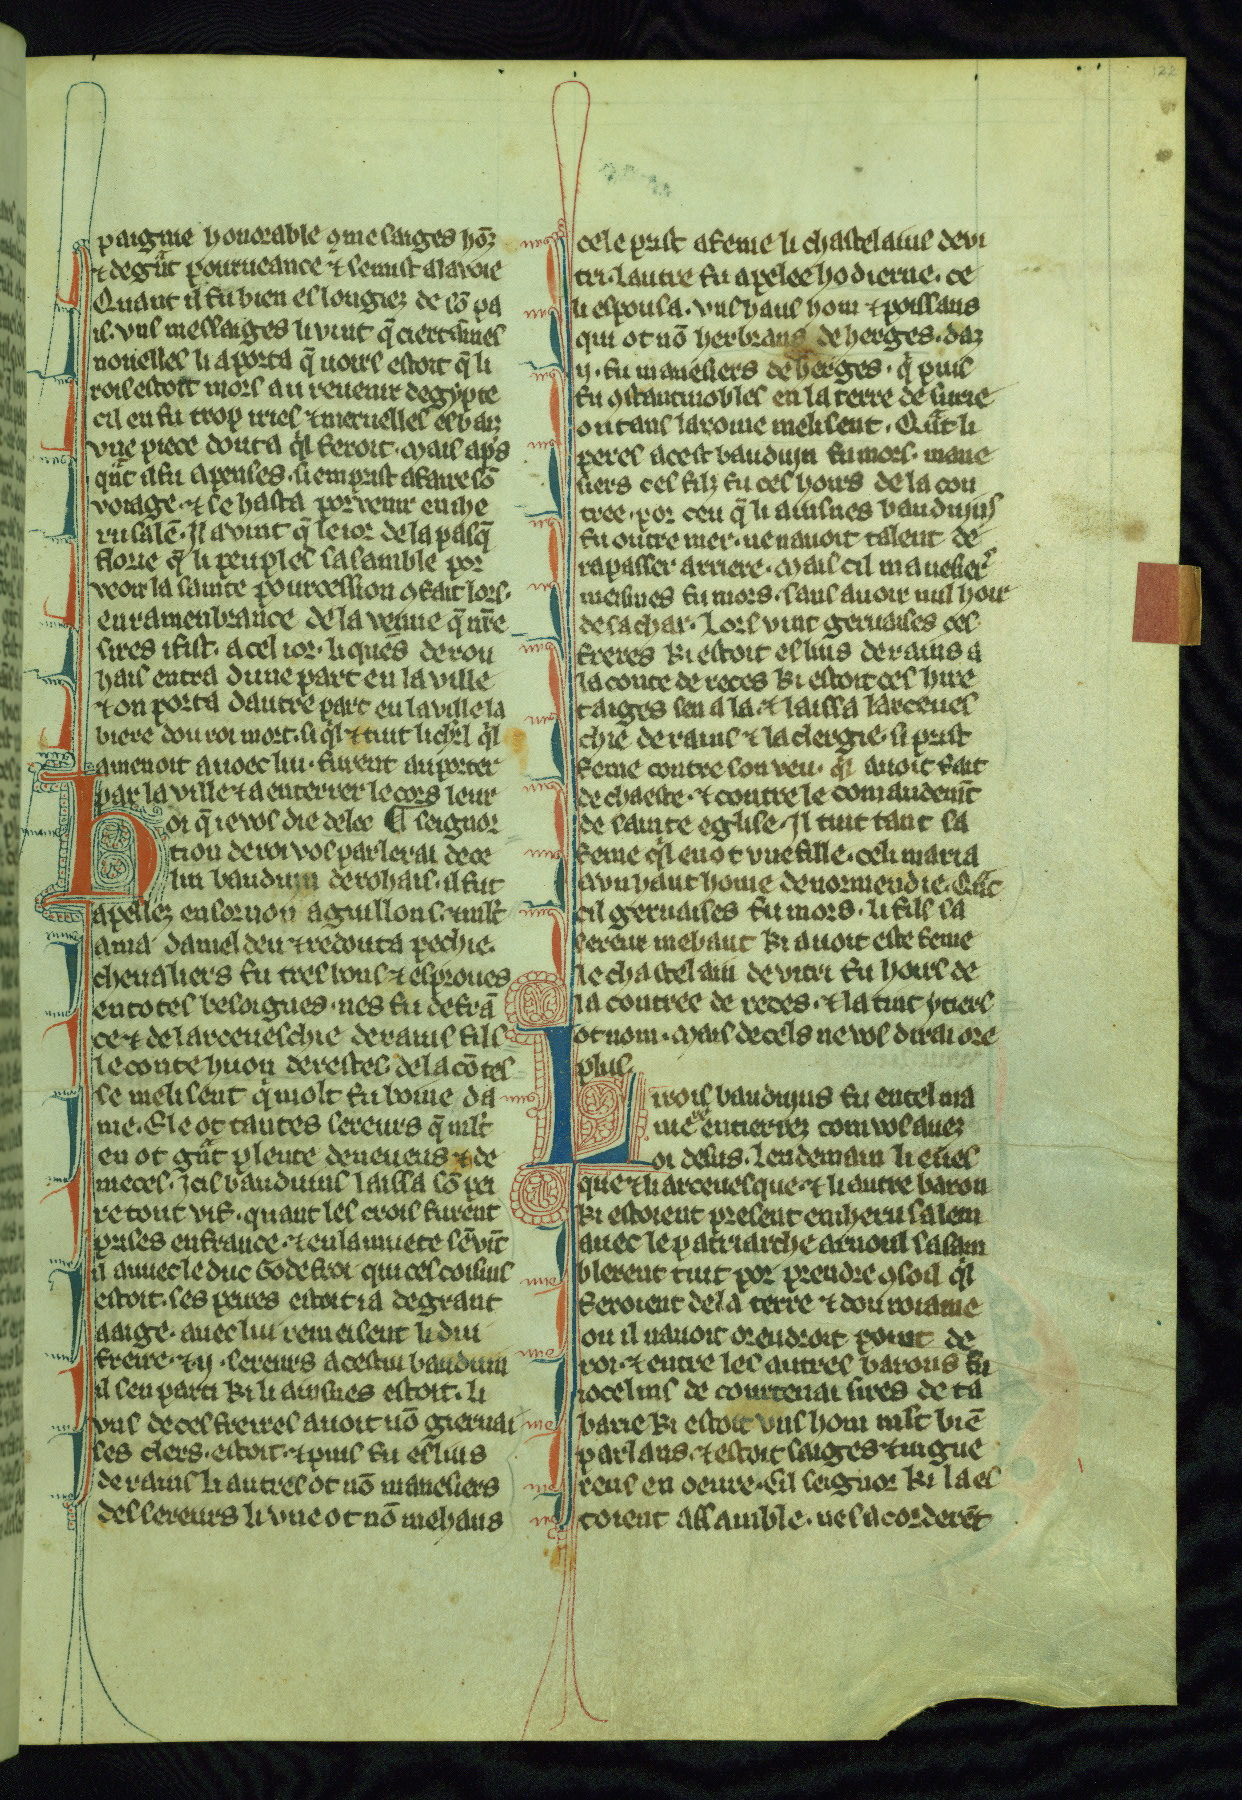 paignie honorable ꝯme saiges hoz̄
⁊ de gᵃ̄t pourueance ⁊ se mist a la voie
Quant il fu bien eslongiez de sō pa
is. vns messaiges li vint q̄ certainnes
nouelles li aporta q̄ uoirs estoit q̄ li
rois estoit mors au reuenir degypte
cil en fu trop iriés ⁊ merueilles esbaiz
vne piece douta qͥl feroit. Mais apͤs
qͣ̄t il fu apenses. si emprist a faire sō
voiage. ⁊ se hasta por venir en ihe
rusalē. Il auint q̄ le ior de la pasq̄
florie q̄ li peuples sasamble por
veoir la sainte pourcession ꝯ fait lors.
en ramenbrance de la venue q̄ nr̄e
sires i fist. a cel ior. li quens de rou
hais entra dune part en la ville
⁊ on porta dautre part en la ville la
biere dou roi mort. si qͥl ⁊ tuit li chr̄l qͥl
amenoit auoec lui. furent au porter
par la ville ⁊ a enterrer le cors ieur
Por q̄ ie vos die de lee ¶ seignor
tion de roi vos parlerai de ce
lui bauduin de rohais. il fut
apellez en sornon aguillons. mlt̄
ama damel deu ⁊ redouta pechie.
cheualiers fu tres bons ⁊ esproues
en totes besoignes. nes fu de frā
ce ⁊ de larceueschie de rains fils
le conte huon de restes. de la cōtes
se melisent q̄ molt fu bonne da
me. Ele ot tantes sereurs q̄ mlt̄
en ot gᵃ̄t plente de neueus ⁊ de
nieces. Icis bauduins laissa sō pei
re tout vif. quant les crois furent
prises en france. ⁊ en la muete sē vīt
il auuec le duc Godefroi qui ces coisins
estoit. ses peires estoit ia de grant
aaige. auec lui remeisent li dui
freire. ⁊ ij. sereurs a cestui bauduin
il sen parti ki li ainsnes estoit. li
vns de ces freires auoit nō gieruai
ses clers. estoit. ⁊ puis fu eslius
de rains li autres ot nō manesiers
des sereurs li vne ot nō mehaus
cele prist a feme li chastelains de vi
tri. lautre fu apelee hodierne. ce
li espousa. vns haus hom ⁊ poissans
qui ot nō herbrans de herges. daz
ij. fu manesiers de herges. q̄ puis
fu ꝯstantinobles en la terre de surie
ou tans la roine melisent. Qᵃ̄t li
peres a cest bauduin fu mors. mane
siers ces filz fu ces hoirs de la con
tree. por ceu q̄ li ainsnes bauduins
fu outre mer. ne nauoit talent de
rapasser arriere. Mais cil manesier̾
meismes fu mors. sans auoir nul hoir
de sa char. Lors vint geruaises ces
freres ki estoit eslius de rains a
la conte de retes ki estoit ces hire
taiges sen ala. ⁊ laissa larceues
chie de rains ⁊ la clergie. si prist
feme contre son veu. qͥl auoit fait
de chaeste. ⁊ contre le comandemt̄
de sainte eglise. Il tint tant sa
feme qͥl en ot vne fille. celi maria
a vn haut home de normendie. Qᵃ̄t
cil geruaises fu mors. li fils sa
sereur mehaut ki auoit este feme
le chastelain de vitri fu hoirs de
la contree de retes. ⁊ la tint ytiers
ot nom. Mais de cels ne vos dirai ore
plus.
Li rois bauduins fu en tel ma
niere entierrez com vos auez
oi desus. lendemain li eues
que ⁊ li arceuesque. ⁊ li autre baron
ki estoient present en iherusalem
auec le patriarche arnoul sasam
blerent tuit por prendre ꝯsoil qͥl
feroient de la terre ⁊ dou roiame
ou il nauoit orendroit point de
roi. ⁊ entre les autres barons fu
iocelins de courtenai sires de ta
barie ki estoit vns hom mlt̄ biē
parlans. ⁊ estoit saiges ⁊ uigue
reus en oeure. Cil seignor ki la es
toient assamble. ne sacorderēt